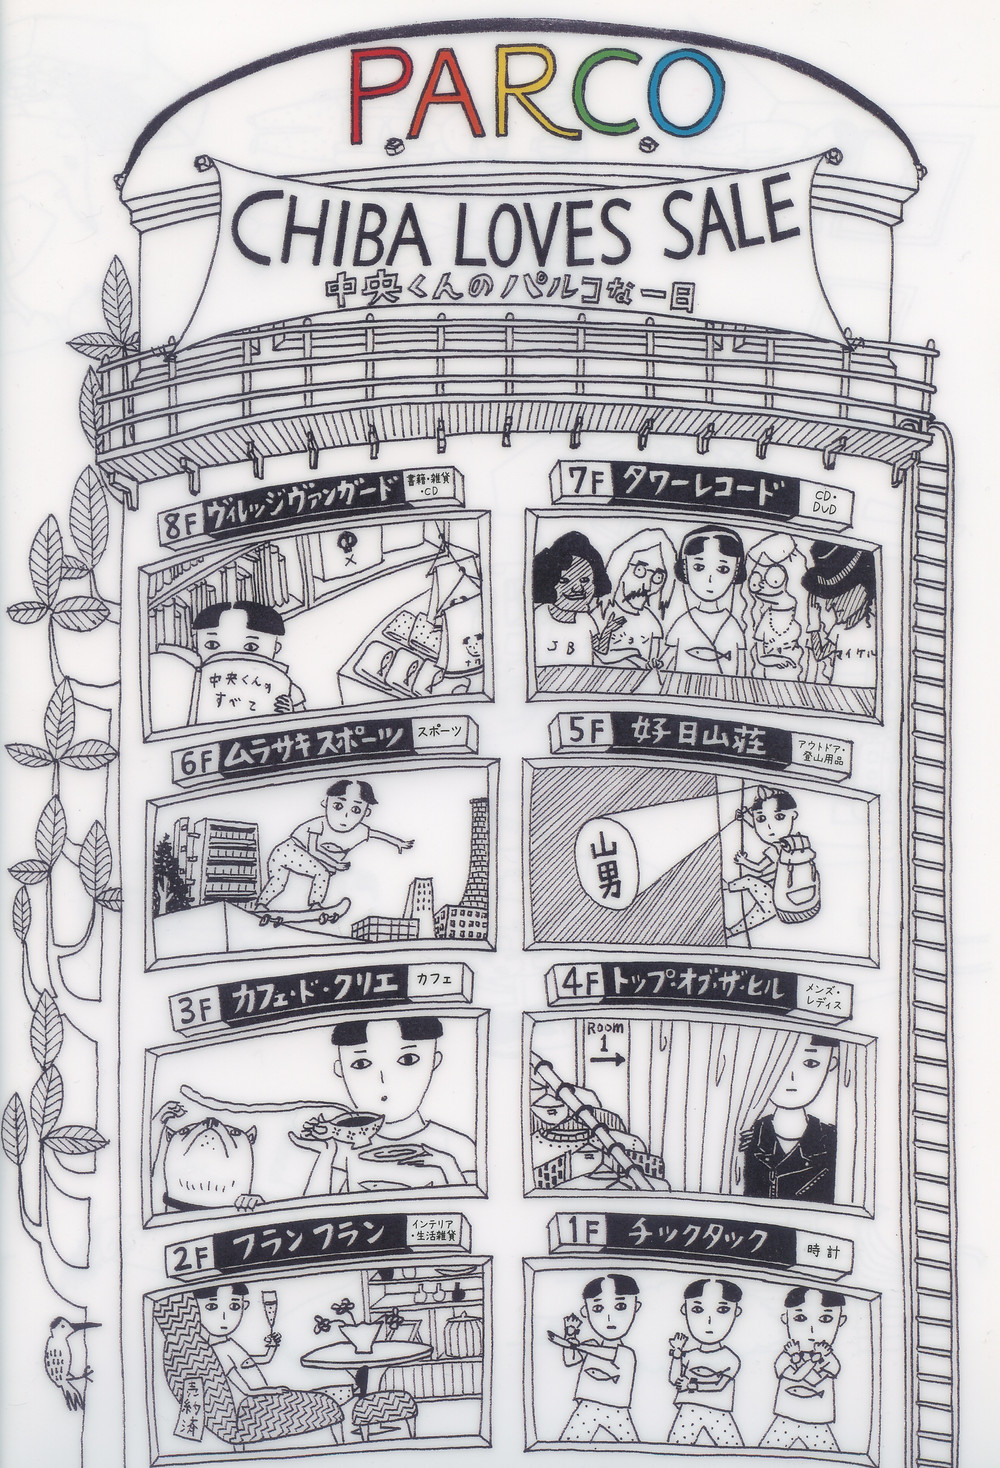 PARCO
CHIBA LOVES SALE
中央くんのパルコな一日
8F ヴィレッジヴァンガード 書籍・雑貨・CD
中央くんの
すべて
7F タワーレコード CD・DVD
JB
マイケル
6F ムラサキスポーツ スポーツ
5F 好日山荘 アウトドア・登山用品
山男
3F カフェ・ド・クリエ カフェ
4F トップ・オブ・ザ・ヒル メンズ・レディス
ROOM
1
2F フランフラン インテリア・生活雑貨
売約済
1F チックタック 時計